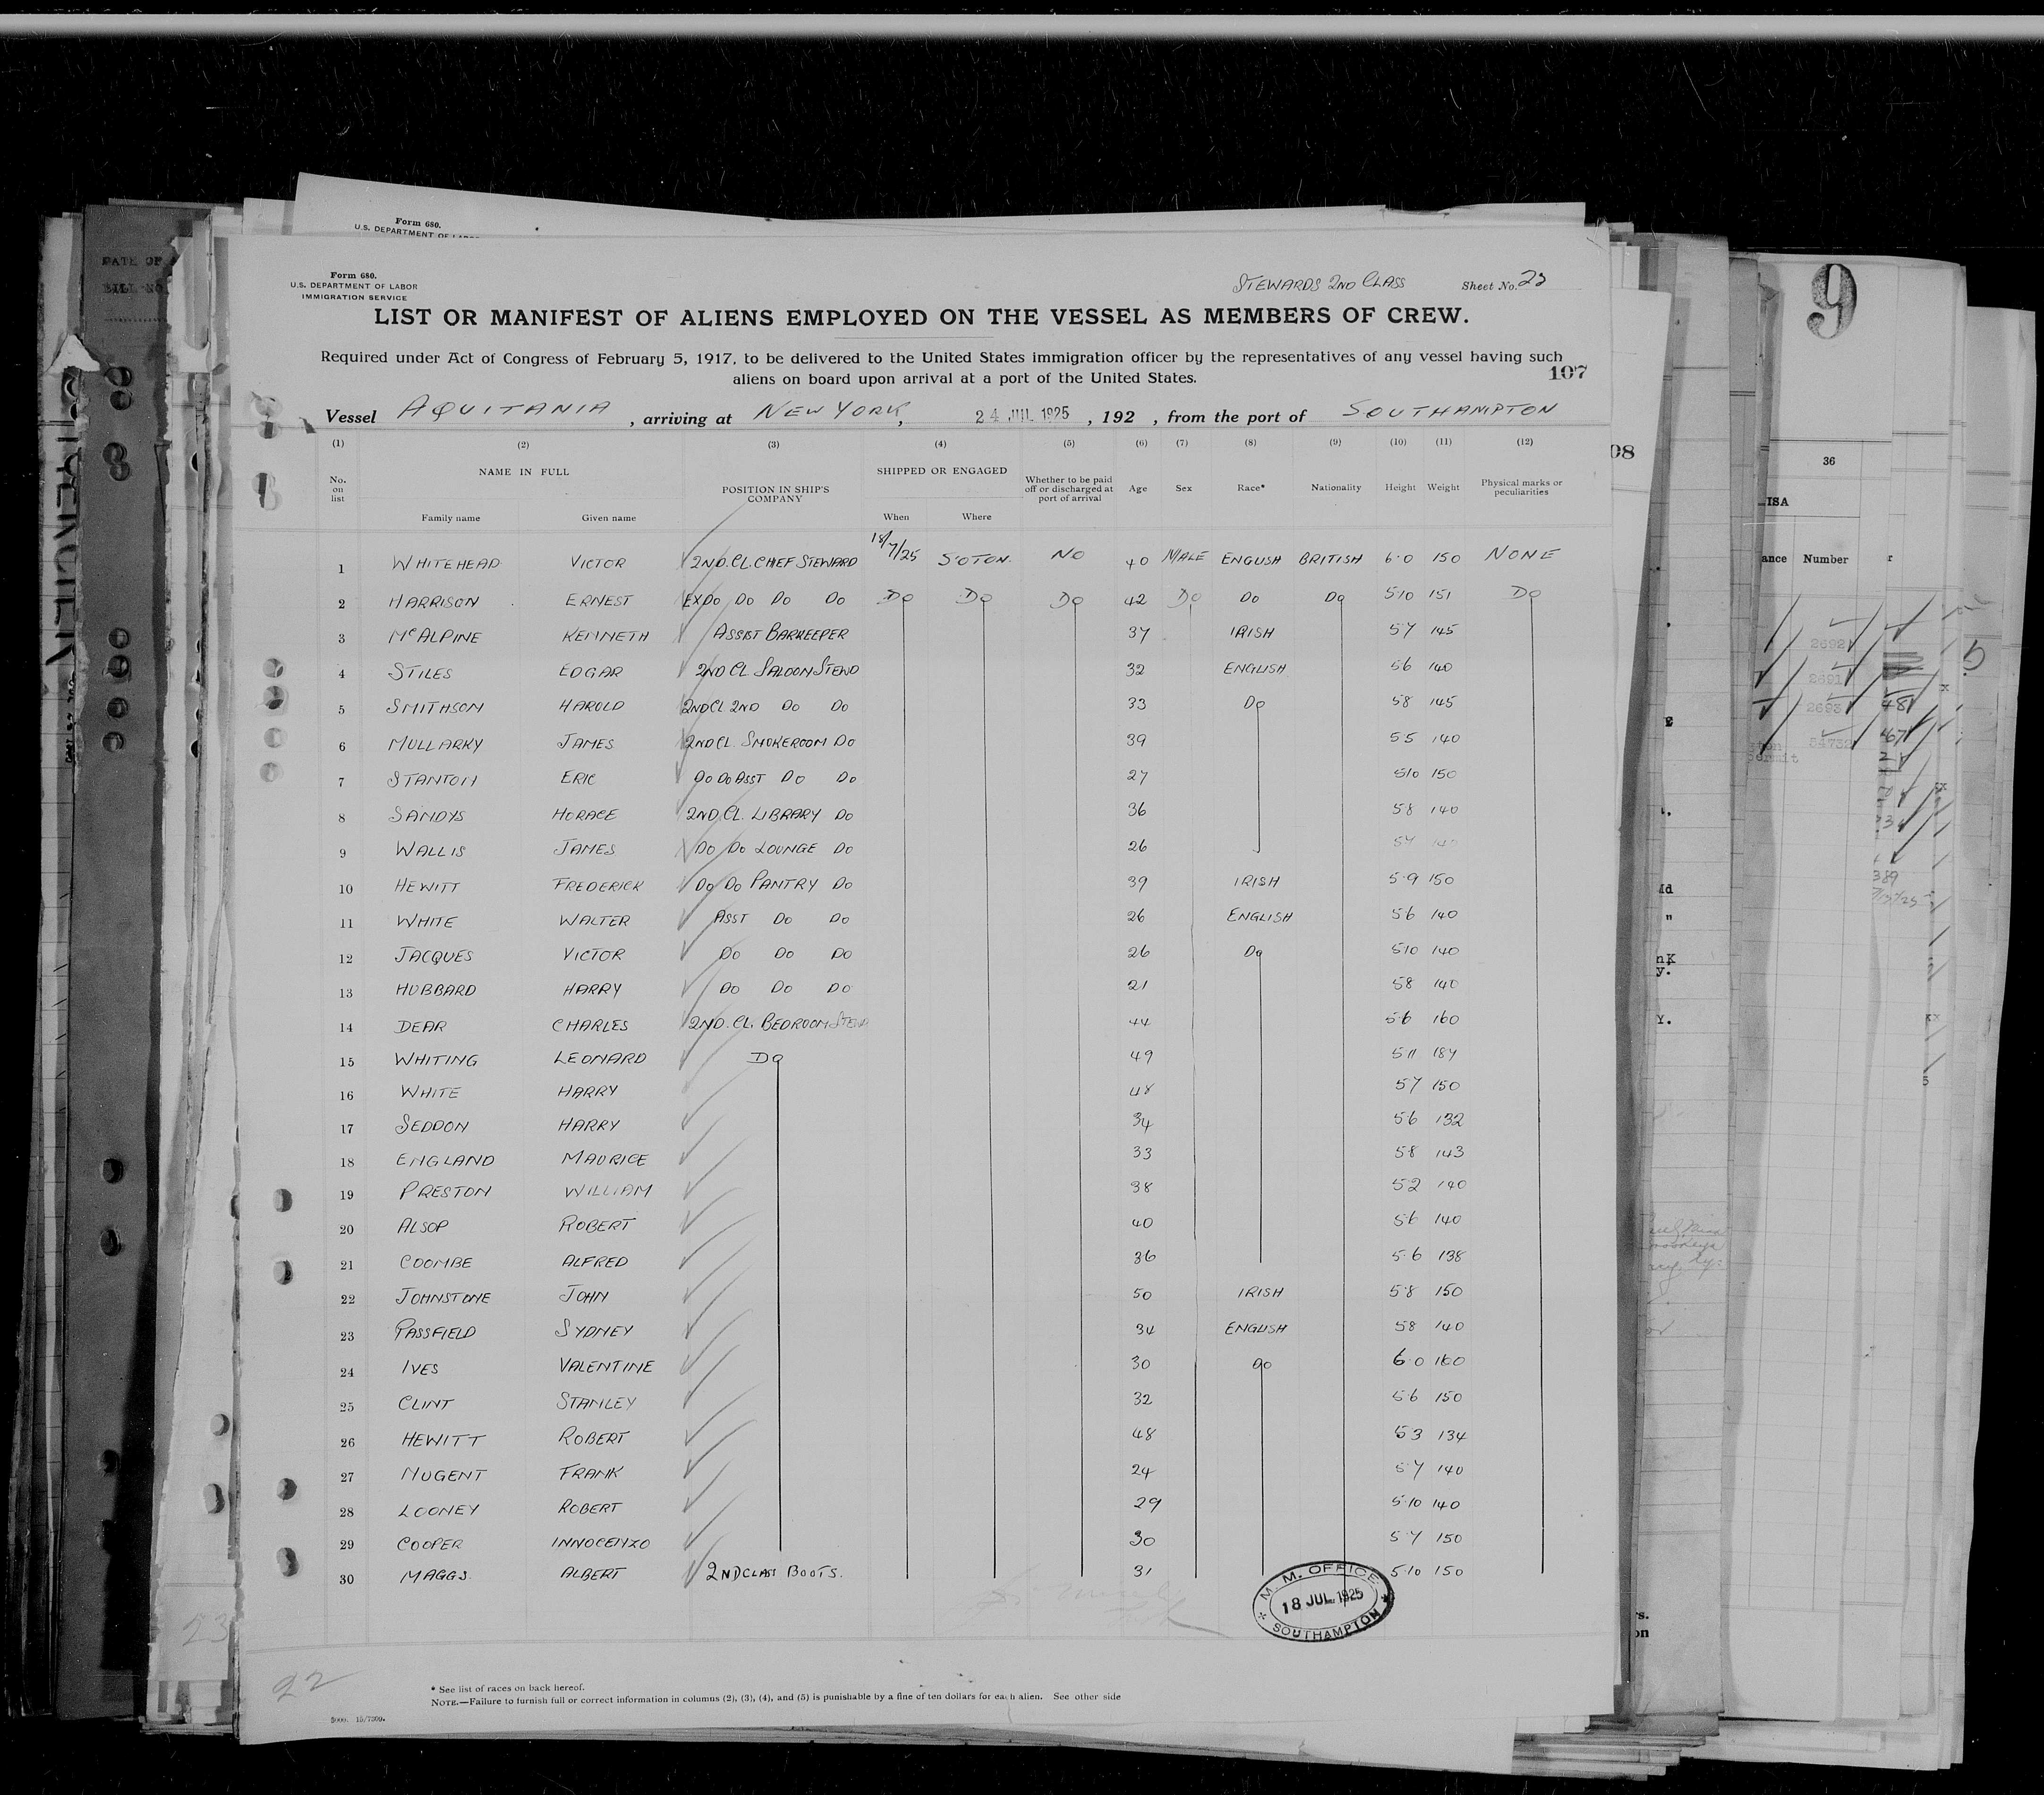 Form 680.
U.S. DEPARTMENT OF LABOR
Form 680.
U.S. DEPARTMENT OF LABOR
IMMIGRATION SERVICE
STEWARDS 2ND CLASS Sheet No. 23
LIST OR MANIFEST OF ALIENS EMPLOYED ON THE VESSEL AS MEMBERS OF CREW.
Required under Act of Congress of February 5, 1917, to be delivered to the United States immigration officer by the representatives of any vessel having such
aliens on board upon arrival at a port of the United States.
107
Vessel AQUITANIA, arriving at NEW YORK, 24 JUL 1925, 192 , from the port of SOUTHAMPTON
(1) (2) (3) (4) (5) (6) (7) (8) (9) (10) (11) (12)
No. on list NAME IN FULL POSITION IN SHIP'S COMPANY SHIPPED OR ENGAGED Whether to be paid off or discharged at port of arrival Age Sex Race* Nationality Height Weight Physical marks or peculiarities
Family name Given name When Where
1 WHITEHEAD VICTOR 2ND. CL. CHIEF STEWARD 18/7/25 S'OTON. NO 40 MALE ENGLISH BRITISH 6·0 150 NONE
2 HARRISON ERNEST EX DO DO DO DO DO DO DO 42 DO DO DO 5·10 151 DO
3 McALPINE KENNETH ASSIST BARKEEPER 37 IRISH 5·7 145
4 STILES EDGAR 2ND CL. SALOON STEWD 32 ENGLISH 5·6 140
5 SMITHSON HAROLD 2ND CL 2ND DO DO 33 DO 5·8 145
6 MULLARKY JAMES 2ND CL. SMOKEROOM DO 39 5·5 140
7 STANTON ERIC DO DO ASST DO DO 27 5·10 150
8 SANDYS HORACE 2ND. CL. LIBRARY DO 36 5·8 140
9 WALLIS JAMES DO DO LOUNGE DO 26 5·7
10 HEWITT FREDERICK DO DO PANTRY DO 39 IRISH 5·9 150
11 WHITE WALTER ASST DO DO 26 ENGLISH 5·6 140
12 JACQUES VICTOR DO DO DO 26 DO 5·10 140
13 HUBBARD HARRY DO DO DO 21 5·8 140
14 DEAR CHARLES 2ND. CL. BEDROOM STEWD 44 5·6 160
15 WHITING LEONARD DO 49 5·11 187
16 WHITE HARRY 48 5·7 150
17 SEDDON HARRY 34 5·6 132
18 ENGLAND MAURICE 33 5·8 143
19 PRESTON WILLIAM 38 5·2 140
20 ALSOP ROBERT 40 5·6 140
21 COOMBE ALFRED 36 5·6 138
22 JOHNSTONE JOHN 50 IRISH 5·8 150
23 PASSFIELD SYDNEY 34 ENGLISH 5·8 140
24 IVES VALENTINE 30 DO 6·0 160
25 CLINT STANLEY 32 5·6 150
26 HEWITT ROBERT 48 5·3 134
27 NUGENT FRANK 24 5·7 140
28 LOONEY ROBERT 29 5·10 140
29 COOPER INNOCENZO 30 5·7 150
30 MAGGS ALBERT 2ND CLASS BOOTS. 31 5·10 150
M. M. OFFICE
18 JUL 1925
SOUTHAMPTON
23
22
* See list of races on back hereof.
NOTE.—Failure to furnish full or correct information in columns (2), (3), (4), and (5) is punishable by a fine of ten dollars for each alien. See other side
9
36
Number
2692
2691
2693
54732
389